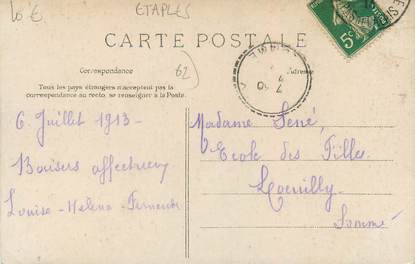 10 €
ETAPLES
CARTE POSTALE
Correspondance
62
Adresse
Tous les pays étrangers n'acceptent pas la
correspondance au recto, se renseigner à la Poste.
5c
6 Juillet 1913 -
Baisers affectueux
Louise - Helena - Fernande
Madame Sené,
Ecole des Filles
Somme